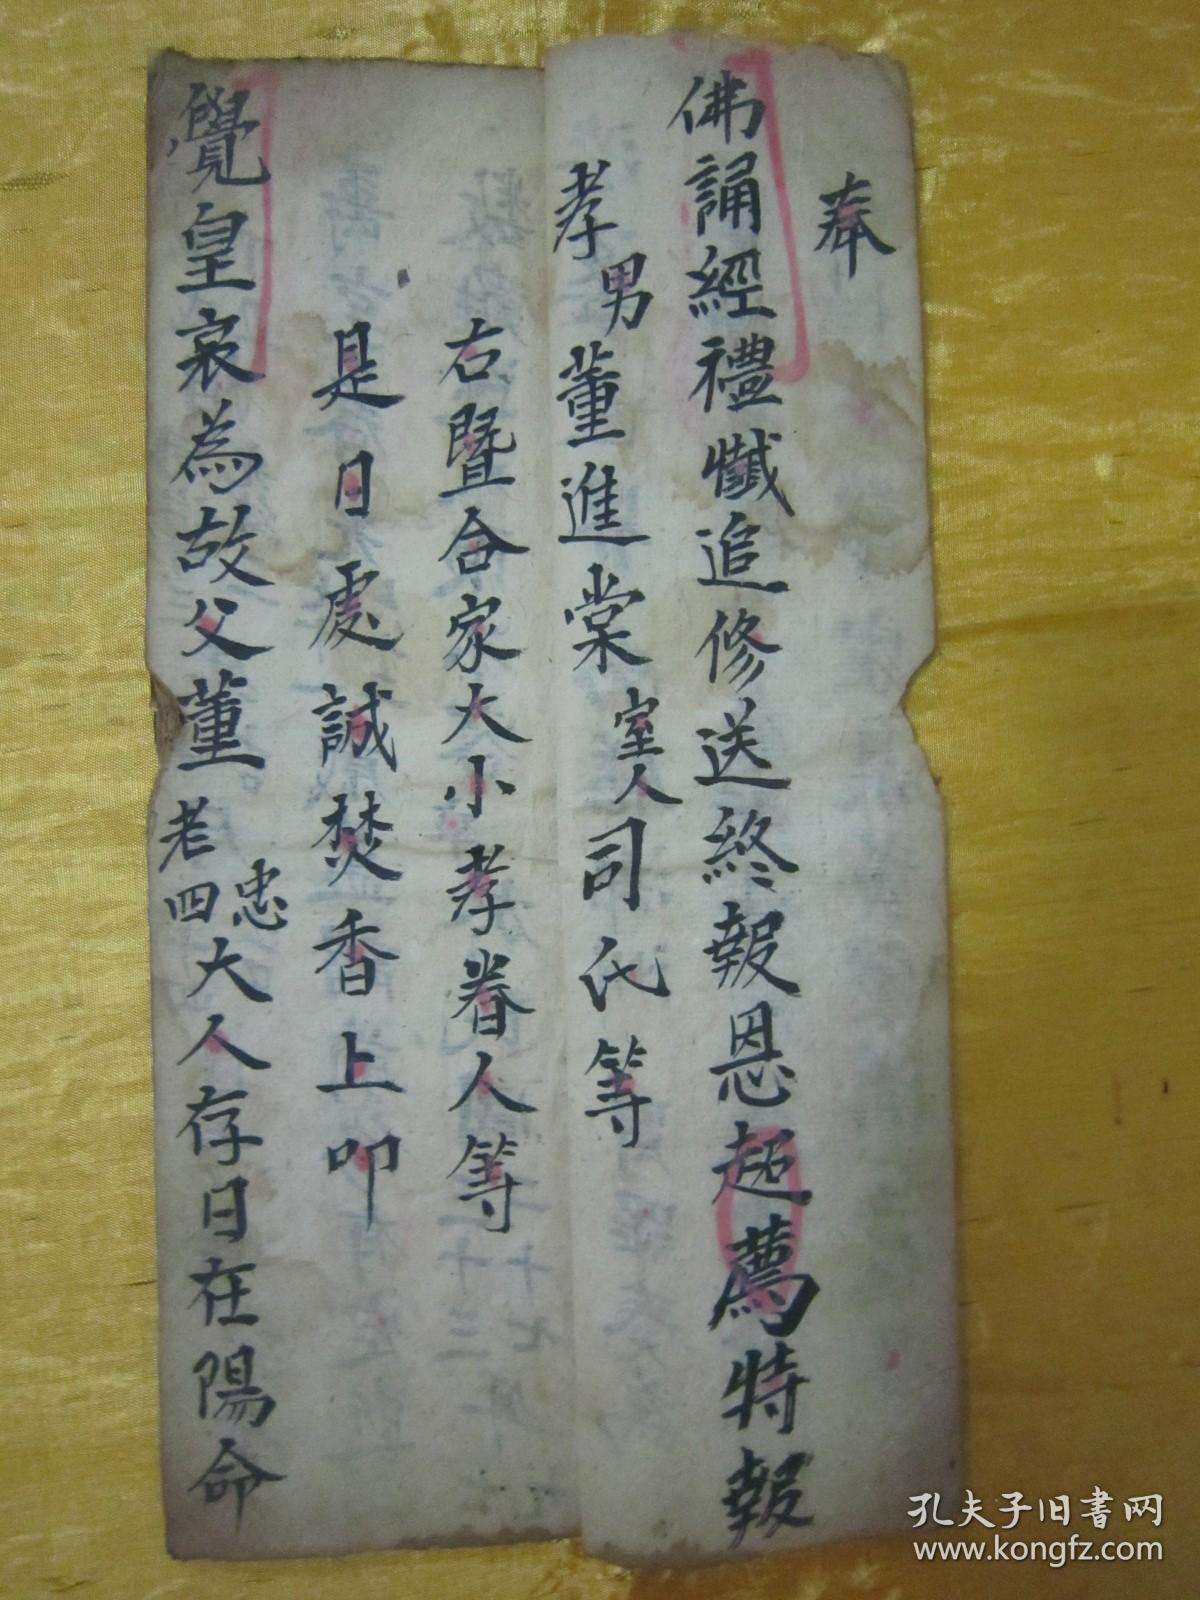 奉
佛誦經禮懺追修送終報恩超薦特報
孝男董進棠室人司氏等
右暨合家大小孝眷人等
是日處誠焚香上叩
覺皇哀為故父董老四忠大人存日在陽命
孔夫子旧书网
www.kongfz.com